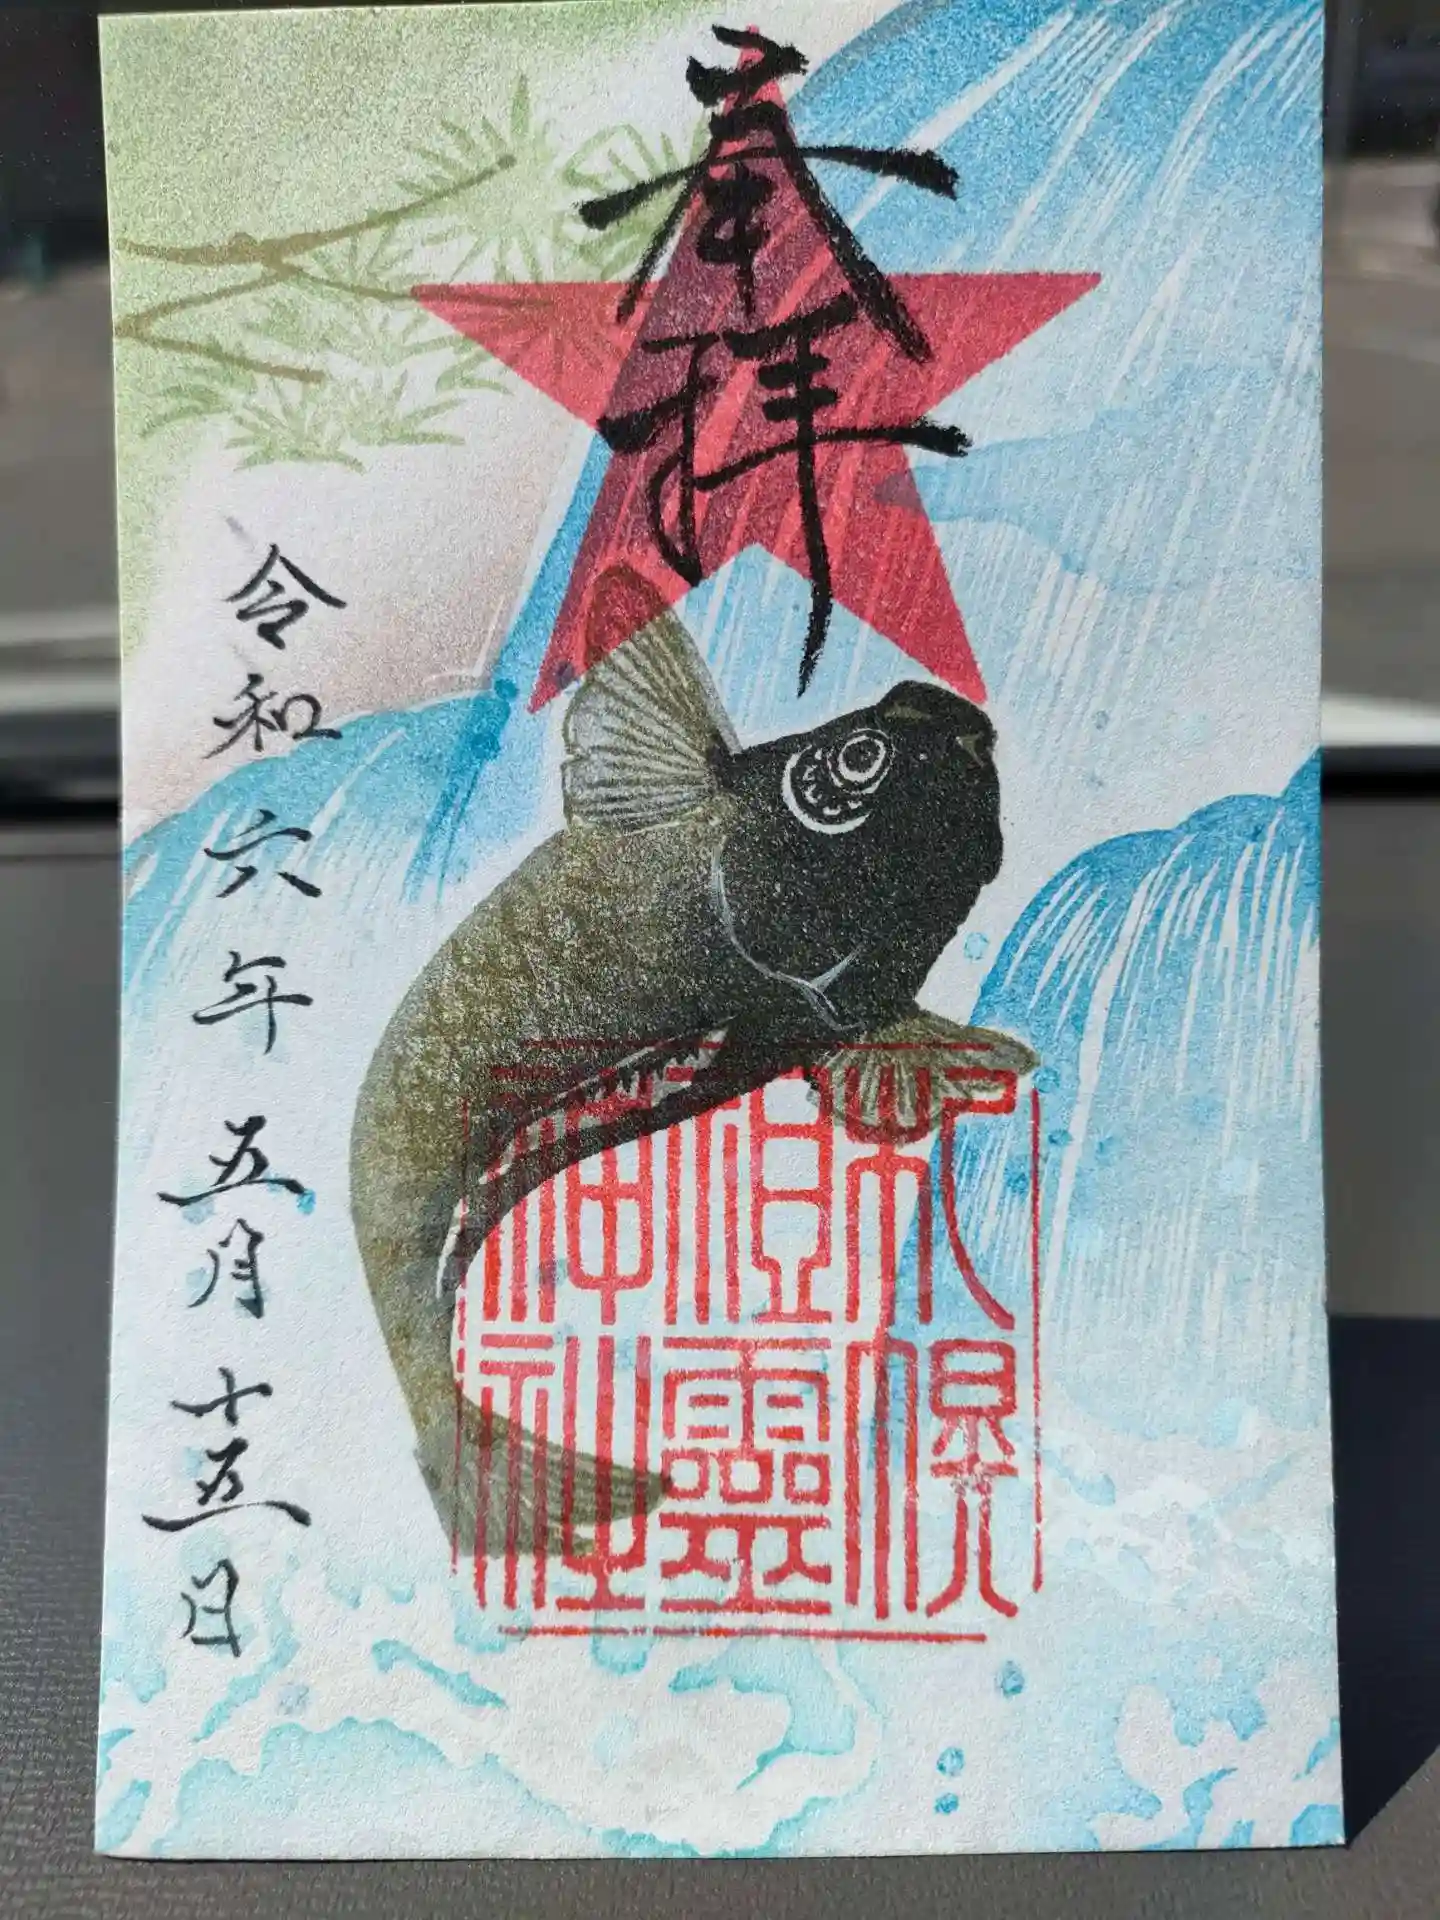 奉拝
札幌
祖霊
神社
令和六年五月十五日